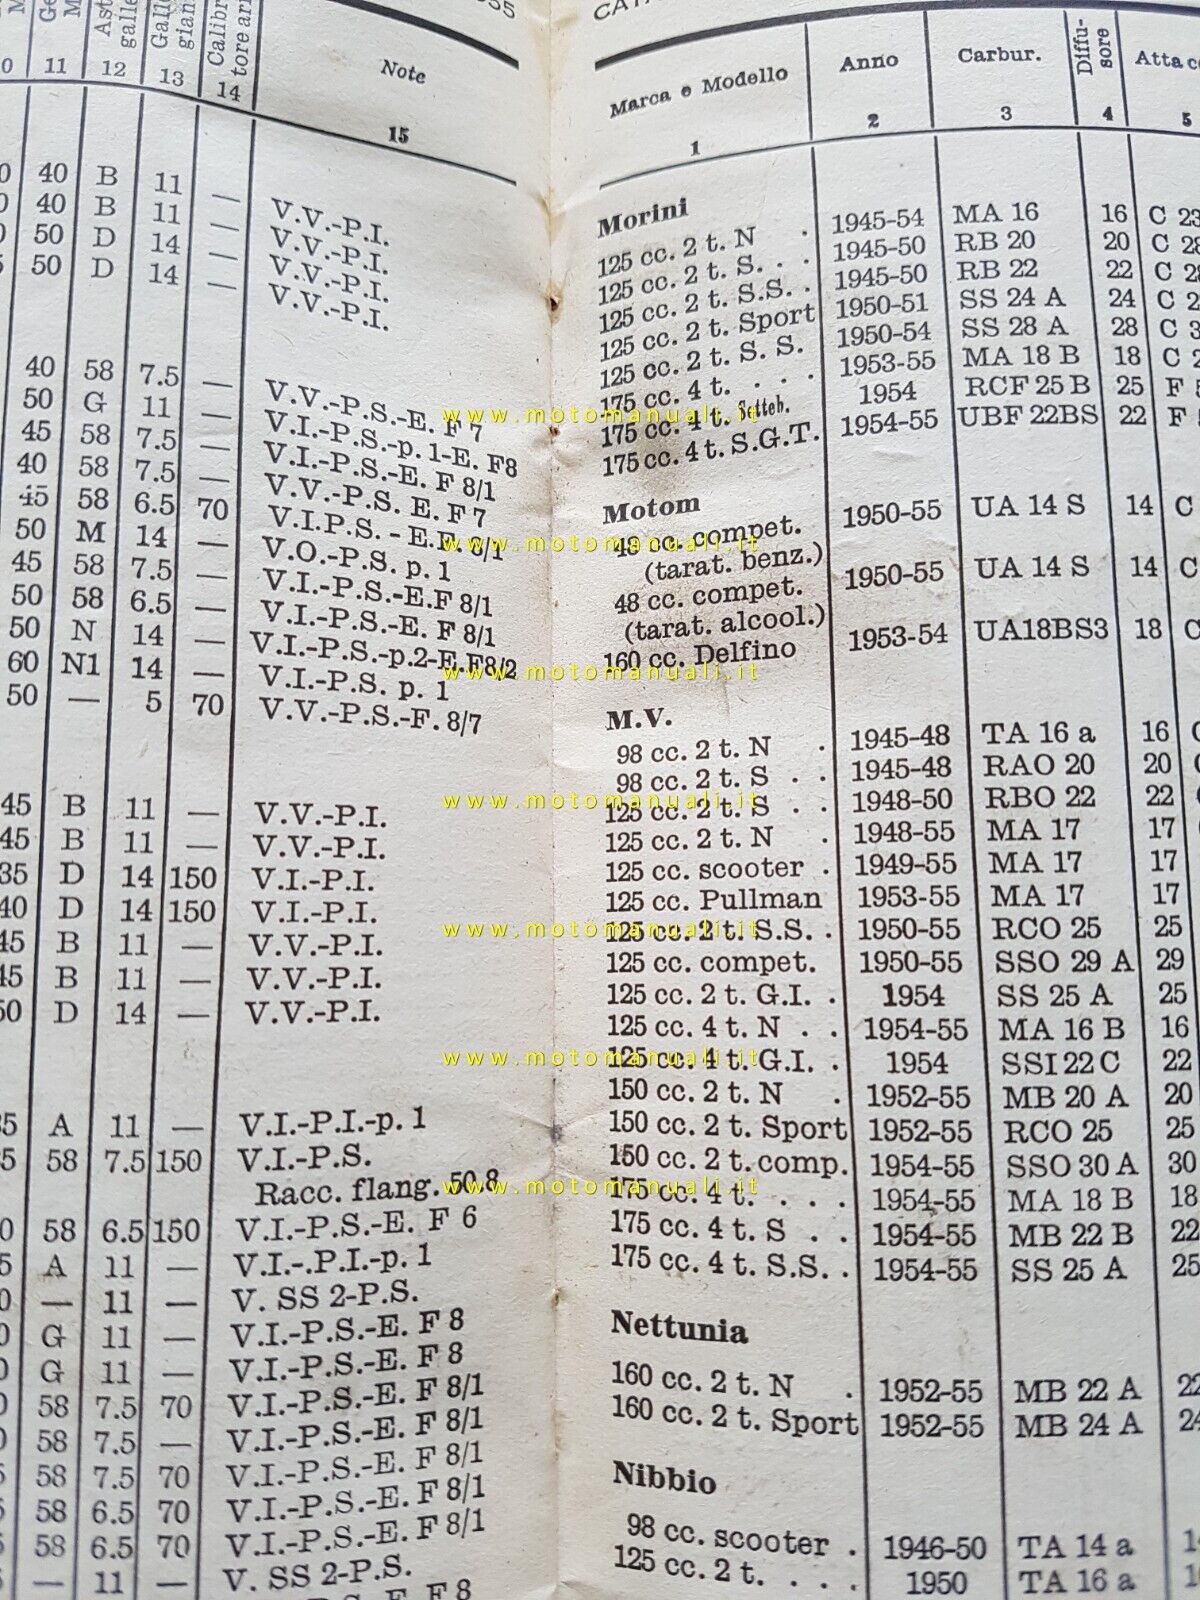 11 12 13 14 Note 15
Galle
Calibr
tore
40 B 11 — V.V.-P.I.
40 B 11 — V.V.-P.I.
50 D 14 — V.V.-P.I.
50 D 14 — V.V.-P.I.
40 58 7.5 — V.V.-P.S.-E. F 7
50 G 11 — V.I.-P.S.-p. 1-E. F8
45 58 7.5 — V.I.-P.S.-E. F 8/1
40 58 7.5 — V.V.-P.S. E. F 7
45 58 6.5 70 V.I.P.S. - E.F. 8/1
50 M 14 — V.O.-P.S. p. 1
45 58 7.5 — V.I.-P.S.-E.F 8/1
50 58 6.5 — V.I.-P.S.-E. F 8/1
50 N 14 — V.I.-P.S.-p.2-E.F8/2
60 N1 14 — V.I.-P.S. p. 1
50 — 5 70 V.V.-P.S.-F. 8/7
45 B 11 — V.V.-P.I.
45 B 11 — V.V.-P.I.
35 D 14 150 V.I.-P.I.
40 D 14 150 V.I.-P.I.
45 B 11 — V.V.-P.I.
45 B 11 — V.V.-P.I.
50 D 14 — V.V.-P.I.
A 11 — V.I.-P.I.-p. 1
58 7.5 150 V.I.-P.S.
Racc. flang. 50.8
58 6.5 150 V.I.-P.S.-E. F 6
A 11 — V.I.-.P.I.-p. 1
— 11 — V. SS 2-P.S.
G 11 — V.I.-P.S.-E. F 8
G 11 — V.I.-P.S.-E. F 8
58 7.5 70 V.I.-P.S.-E. F 8/1
58 7.5 — V.I.-P.S.-E. F 8/1
58 7.5 70 V.I.-P.S.-E. F 8/1
58 6.5 70 V.I.-P.S.-E. F 8/1
58 6.5 70 V.I.-P.S.-E. F 8/1
— 11 — V. SS 2-P.S.
Marca e Modello Anno Carbur. Diffu-
sore
1 2 3 4 5
Morini
125 cc. 2 t. N . 1945-54 MA 16 16 C 23
125 cc. 2 t. S. . . 1945-50 RB 20 20 C 28
125 cc. 2 t. S.S. . 1945-50 RB 22 22 C 28
125 cc. 2 t. Sport 1950-51 SS 24 A 24 C
125 cc. 2 t. S. S. 1950-54 SS 28 A 28 C
175 cc. 4 t. . . . 1953-55 MA 18 B 18 C
175 cc. 4 t. Setteb. 1954 RCF 25 B 25 F
175 cc. 4 t. S.G.T. 1954-55 UBF 22BS 22 F
Motom
48 cc. compet. 1950-55 UA 14 S 14 C
(tarat. benz.)
48 cc. compet. 1950-55 UA 14 S 14 C
(tarat. alcool.)
160 cc. Delfino 1953-54 UA18BS3 18
M.V.
98 cc. 2 t. N . 1945-48 TA 16 a 16
98 cc. 2 t. S . . 1945-48 RAO 20 20
125 cc. 2 t. S . 1948-50 RBO 22 22
125 cc. 2 t. N . 1948-55 MA 17 17
125 cc. scooter . 1949-55 MA 17 17
125 cc. Pullman 1953-55 MA 17 17
125 cc. 2 t. S.S. . 1950-55 RCO 25 25
125 cc. compet. 1950-55 SSO 29 A 29
125 cc. 2 t. G.I. . 1954 SS 25 A 25
125 cc. 4 t. N . . 1954-55 MA 16 B 16
125 cc. 4 t. G.I. . 1954 SSI 22 C 22
150 cc. 2 t. N . 1952-55 MB 20 A 20
150 cc. 2 t. Sport 1952-55 RCO 25 25
150 cc. 2 t. comp. 1954-55 SSO 30 A 30
175 cc. 4 t. . . . 1954-55 MA 18 B 18
175 cc. 4 t. S . . 1954-55 MB 22 B 22
175 cc. 4 t. S.S. . 1954-55 SS 25 A 25
Nettunia
160 cc. 2 t. N . 1952-55 MB 22 A 22
160 cc. 2 t. Sport 1952-55 MB 24 A 24
Nibbio
98 cc. scooter . 1946-50 TA 14 a
125 cc. 2 t. . . . 1950 TA 16 a
www.motomanuali.it
www.motomanuali.it
www.motomanuali.it
www.motomanuali.it
www.motomanuali.it
www.motomanuali.it
www.motomanuali.it